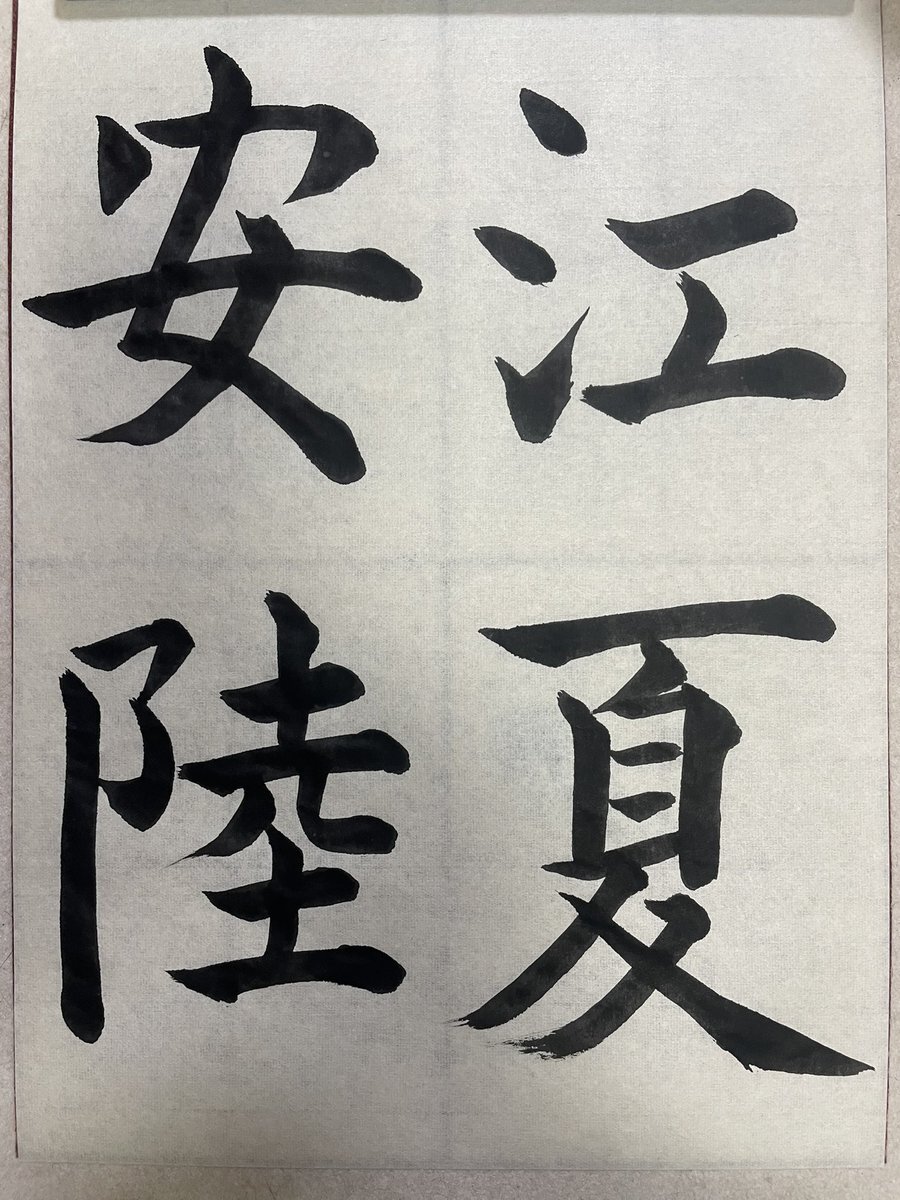 江夏
安陸